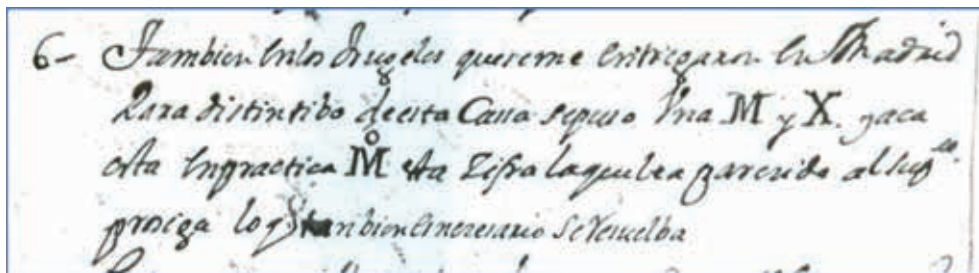 6- Tambien en los Nrugeles que se me entregaron en Madrid
Para distintibo de esta Cassa se puso Una M y X. y aca
esta en practica M esta Zifra la qual ha parecido al sup.
prosiga lo q tanbien es nesesario se resuelba